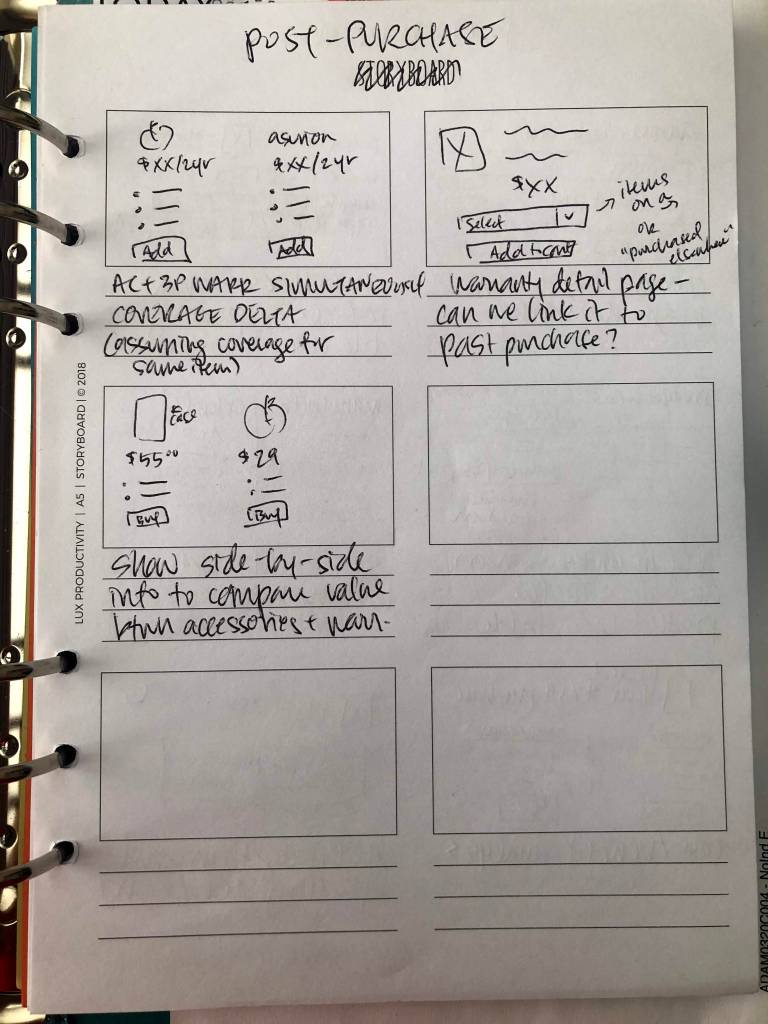 POST-PURCHASE
STORYBOARD
$XX/2yr
Add
asurion
$XX/2yr
Add
AC + 3P WARR SIMULTANEOUSLY
COVERAGE DELTA
(assuming coverage for
same item)
X
$XX
Select
Add to cart
items
or
"purchased
elsewhere"
Warranty detail page -
can we link it to
past purchase?
case
$55.00
Buy
$29
Buy
Show side-by-side
info to compare value
btwn accessories + warr.
LUX PRODUCTIVITY | A5 | STORYBOARD | © 2018